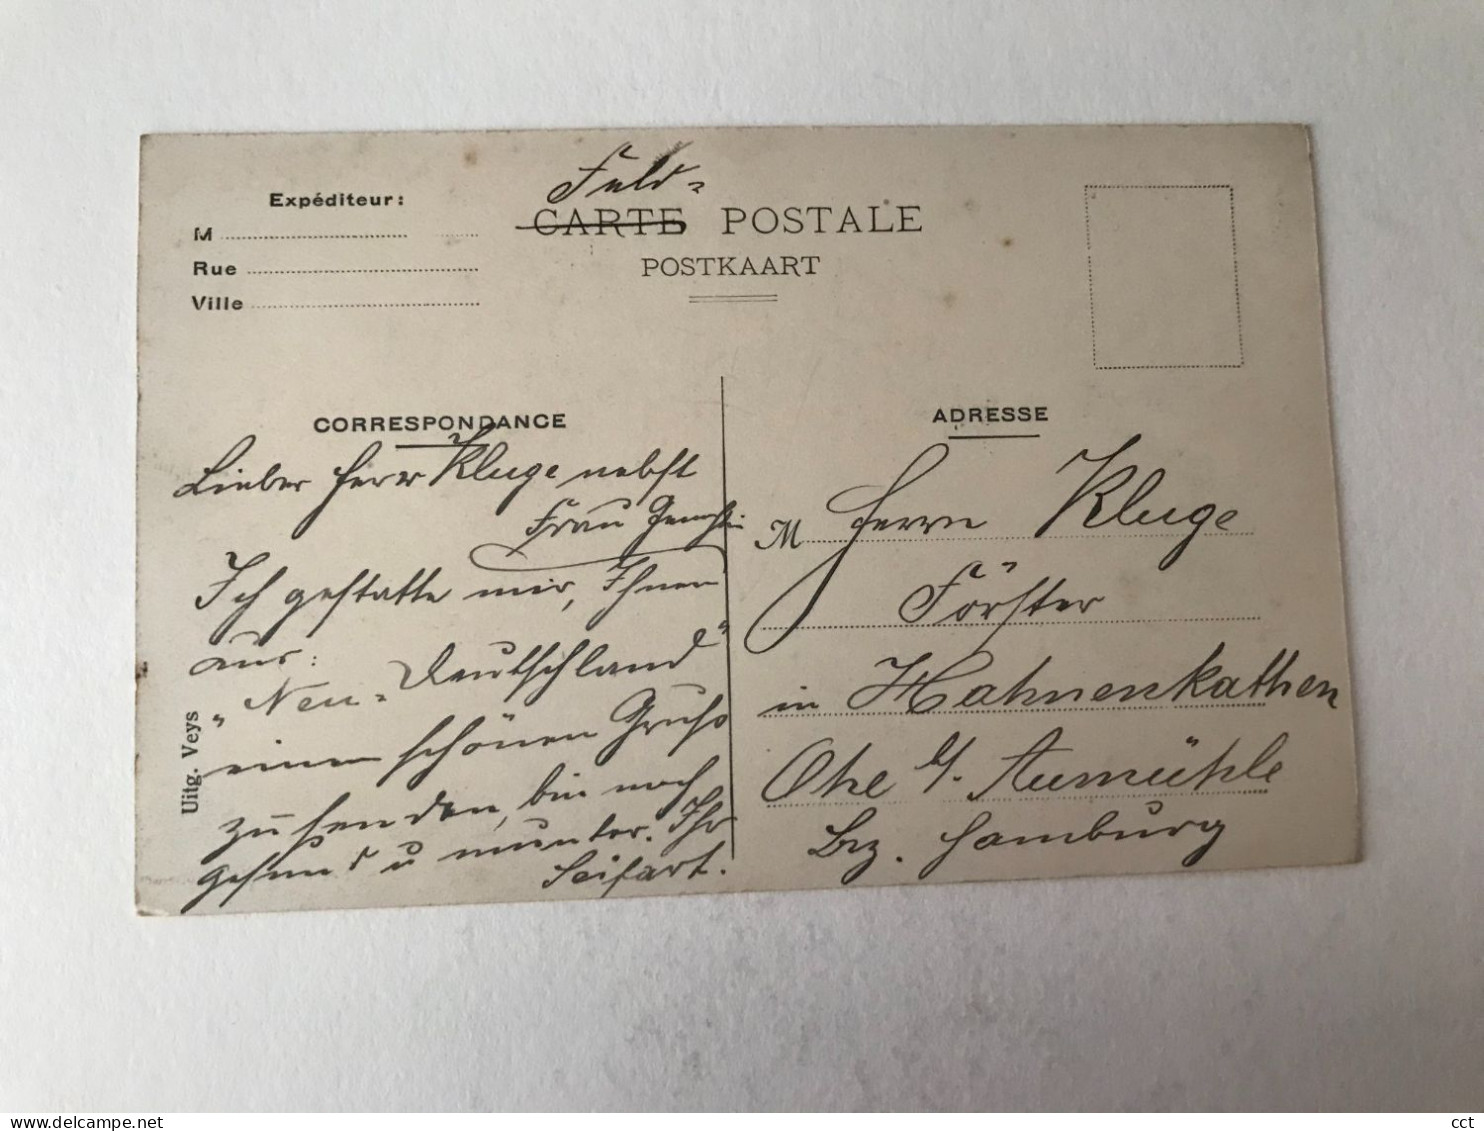 Feld-
Expéditeur:
M
Rue
Ville
CARTE POSTALE
POSTKAART
CORRESPONDANCE
Lieber Herr Kluge nebst
Frau
Ich gestatte mir, Ihnen
aus:
"Neu-Deutschland"
einen schönen Gruß
zu senden, bin noch
gesund u munter. Ihr
Seifart.
Uitg. Veys
ADRESSE
M Herrn Kluge
Förster
in Hahnenkathen
Ohe b/. Aumühle
Bz. Hamburg
www.delcampe.net
cct